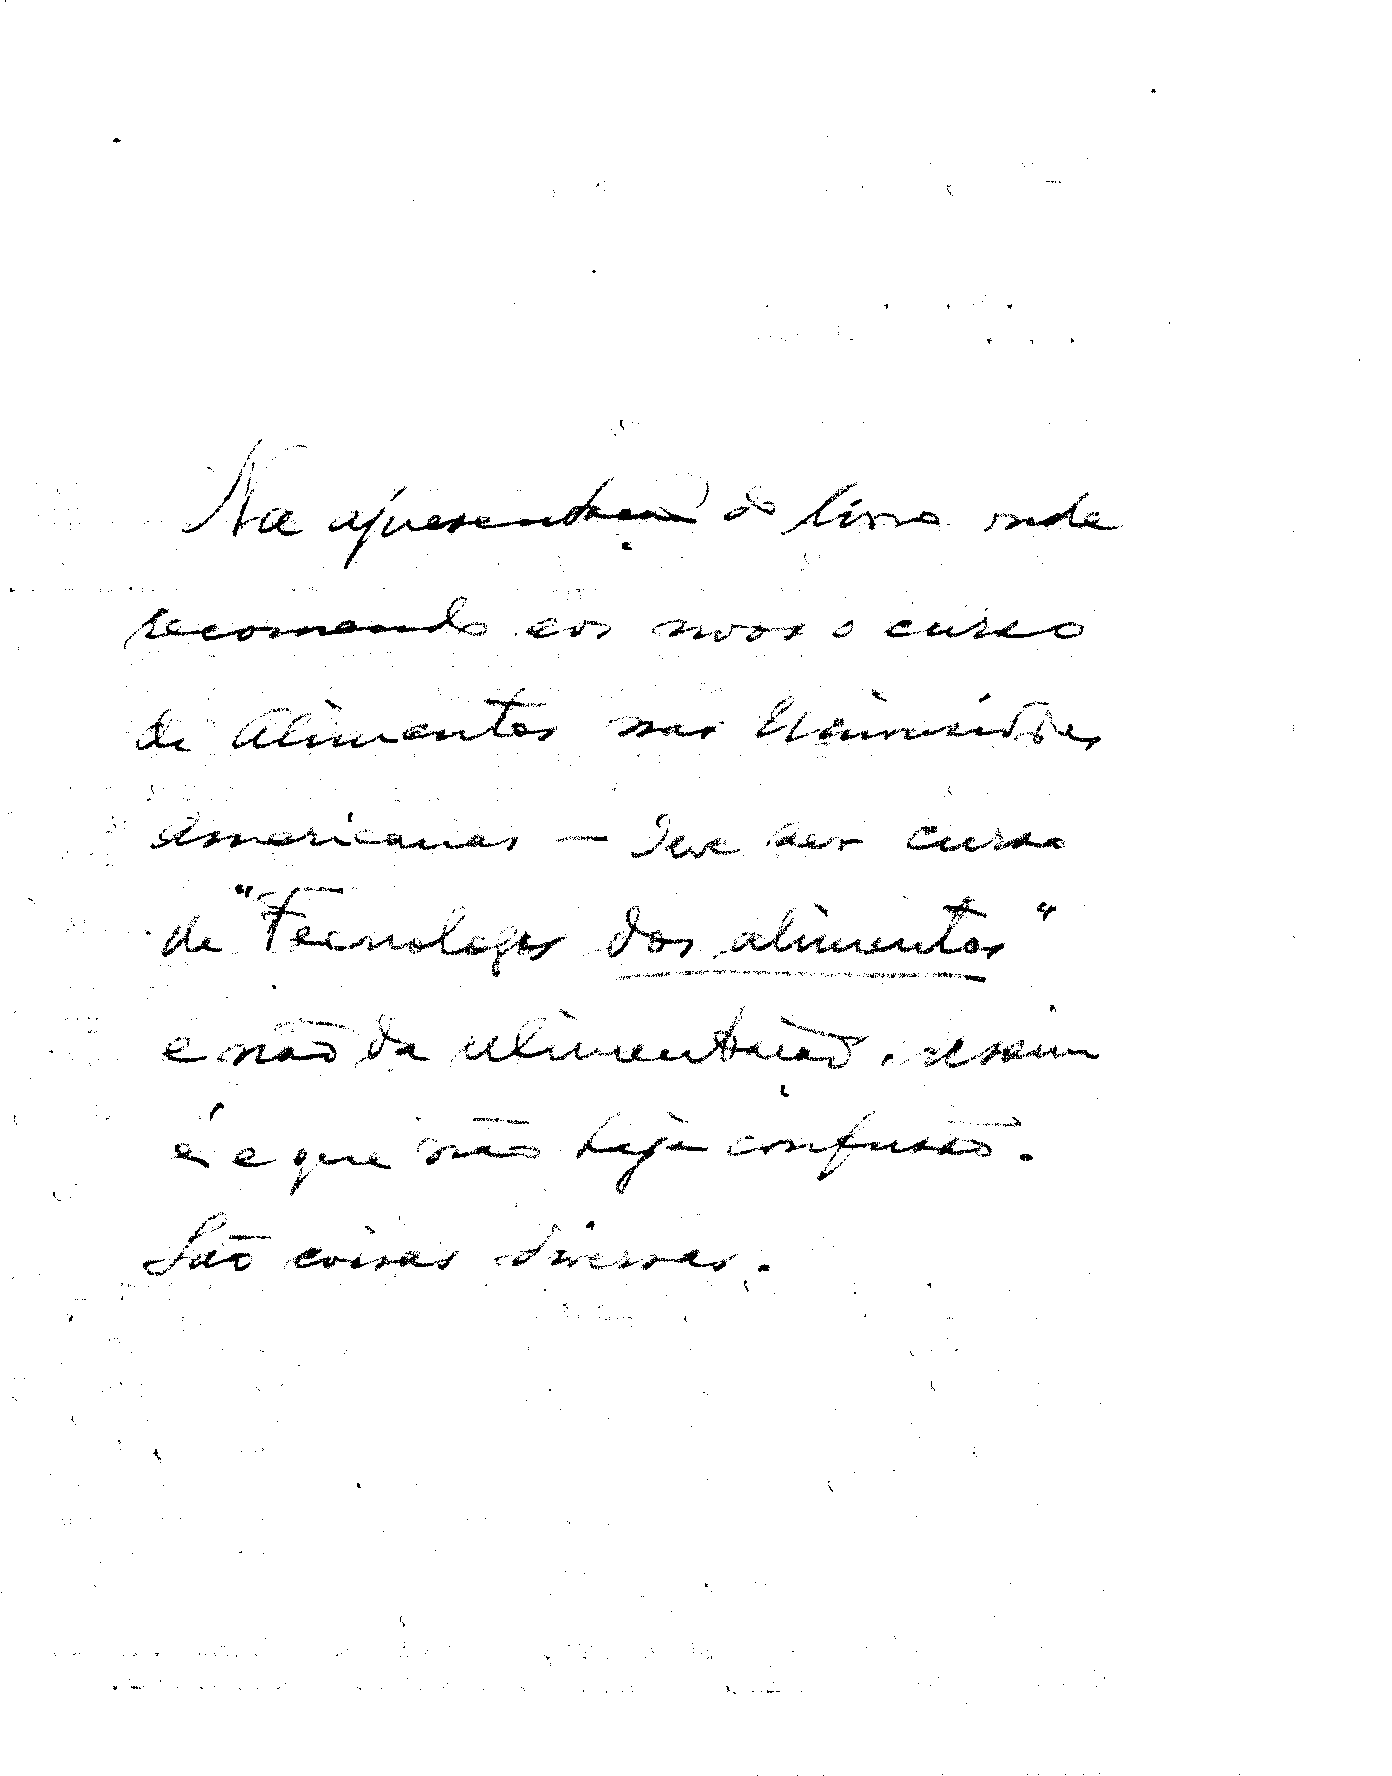 Na apresentação do livro onde
recomendo aos novos o curso
de Alimentos nas Universidades
Americanas — deve ser curso
de "Tecnologia dos alimentos"
e não da alimentação. assim
é e que não haja confusão.
São coisas diversas.